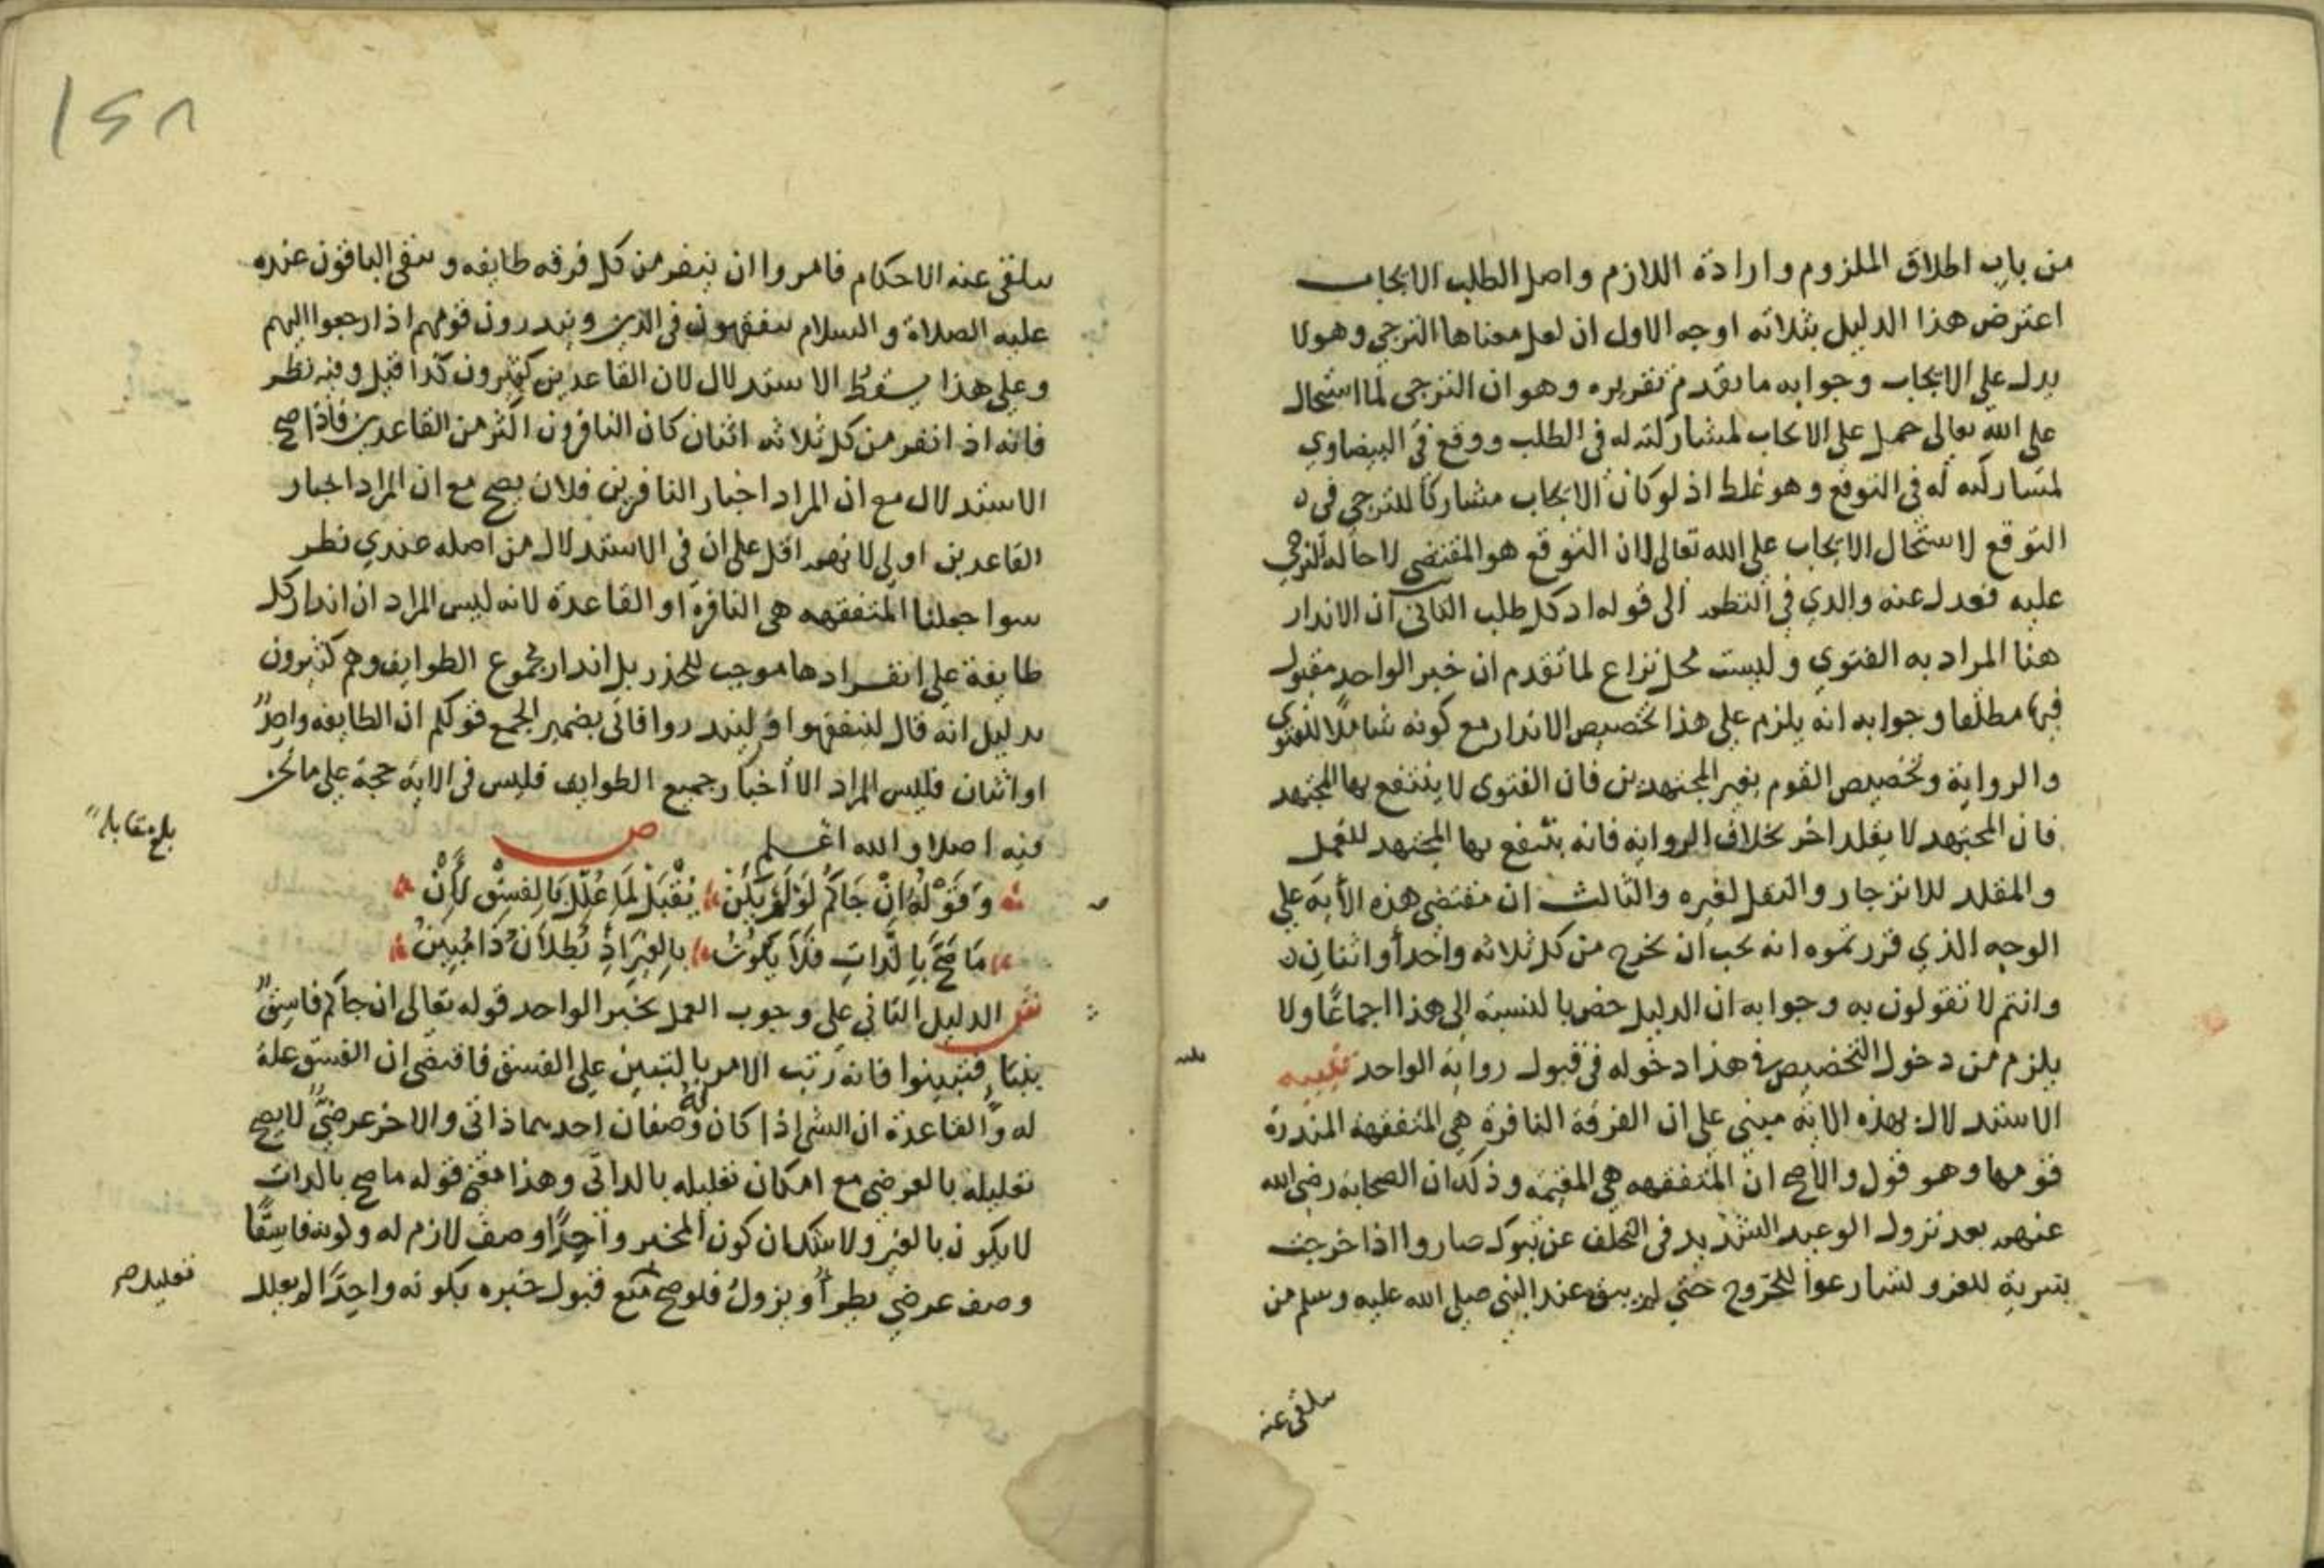 من باب اطلاق الملزوم وارادة اللازم واصل الطلب الايجاب
اعترض هذا الدليل بثلاثه اوجه الاول ان لعل معناها الترجي وهو لا
يدل على الايجاب وجوابه ما تقدم تقريره وهو ان الترجى لما استحال
على الله تعالى حمل على الايجاب لمشاركته له فى الطلب ووقع فى البيضاوي
لمشاركته له فى التوقع وهو غلط اذ لو كان الايجاب مشاركا للترجى فى
التوقع لاستحال الايجاب على الله تعالى لان التوقع هو المقتضى لاحالة الترجي
عليه فعدل عنه والدي في النظم الى قوله اذ كل طلب الثانى ان الانذار
هنا المراد به الفتوي وليست محل نزاع لما تقدم ان خبر الواحد مقبول
فيها مطلقا وجوابه انه يلزم على هذا تخصيص الانذار مع كونه شاملا للفتوي
والرواية وتخصيص القوم بغير المجتهدين فان الفتوى لا ينتفع بها المجتهد
فان المجتهد لا يقلد اخر بخلاف الروايه فانه ينتفع بها المجتهد للعمل
والمقلد للانزجار والنقل لغيره والثالث ان مقتضى هذه الاية على
الوجه الذي قررتموه انه يجب ان يخرج من كل ثلاثه واحدا واثنان
وانتم لا تقولون به وجوابه ان الدليل خص بالنسبة الى هذا اجماعا ولا
يلزم من دخول التخصيص فى هذا دخوله فى قبول رواية الواحد تنبيه
الاستدلال بهذه الاية مبني على ان الفرقة النافرة هي المتفقهة المنذرة
قومها وهو قول والاصح ان المتفقهه هي المقيمة وذلك ان الصحابة رضى الله
عنهم بعد نزول الوعيد الشديد فى التخلف عن تبوك صاروا اذا خرجت
بسرية للغزو لسارعوا للخروج حتي لم يبق عند النبي صلى الله عليه وسلم من
يتلقى عنه
١٢٨
يتلقى عنه الاحكام فامروا ان ينفر من كل فرقه طايفه ويبقى الباقون عنده
عليه الصلاة والسلام يتفقهون فى الدين وينذرون قومهم اذا رجعوا اليهم
وعلى هذا يسقط الاستدلال لان القاعدين كثيرون كذا قيل وفيه نظر
فانه اذ انفر من كل ثلاثه اثنان كان النافرون اكثر من القاعدين فاذا صح
الاستدلال مع ان المراد اخبار النافرين فلان يصح مع ان المراد اخبار
القاعدين اولى لانهم اقل على ان فى الاستدلال من اصله عندي نظر
سوا جعلنا المتفقهه هى النافرة او القاعدة لانه ليس المراد ان انذار كل
طايفة على انفرادها موجب للحذر بل انذار مجموع الطوايف وهم كثيرون
بدليل انه قال ليتفقهوا ولينذروا فاتى بضمير الجمع فوكلم ان الطايفه واحد
او اثنان فليس المراد الا اخبار جميع الطوايف فليس فى الاية حجة على ما نحن
فيه اصلا والله اعلم ص
وقوله ان جاكم لو لم يكن يقبل لما علل بالفسق لان
ما صح بالذات فلا يكون بالغير اذ بطلان ذا مبين
ش الدليل الثانى على وجوب العمل بخبر الواحد قوله تعالى ان جاكم فاسق
بنبا فتبينوا فانه رتب الامر بالتبين على الفسق فاقتضى ان الفسق علة
له والقاعدة ان الشى اذا كان له وصفان احدهما ذاتى والاخر عرضي لا يصح
تعليله بالعرضى مع امكان تعليله بالذاتى وهذا معنى قوله ما صح بالذات
لا يكون بالغير ولا شك ان كون المخبر واحدا وصف لازم له وكونه فاسقا
وصف عرضي يطرأ ويزول فلو صح منع قبول خبره بكونه واحدا لم يعلل
بلغ مقابلة
تعليل صح